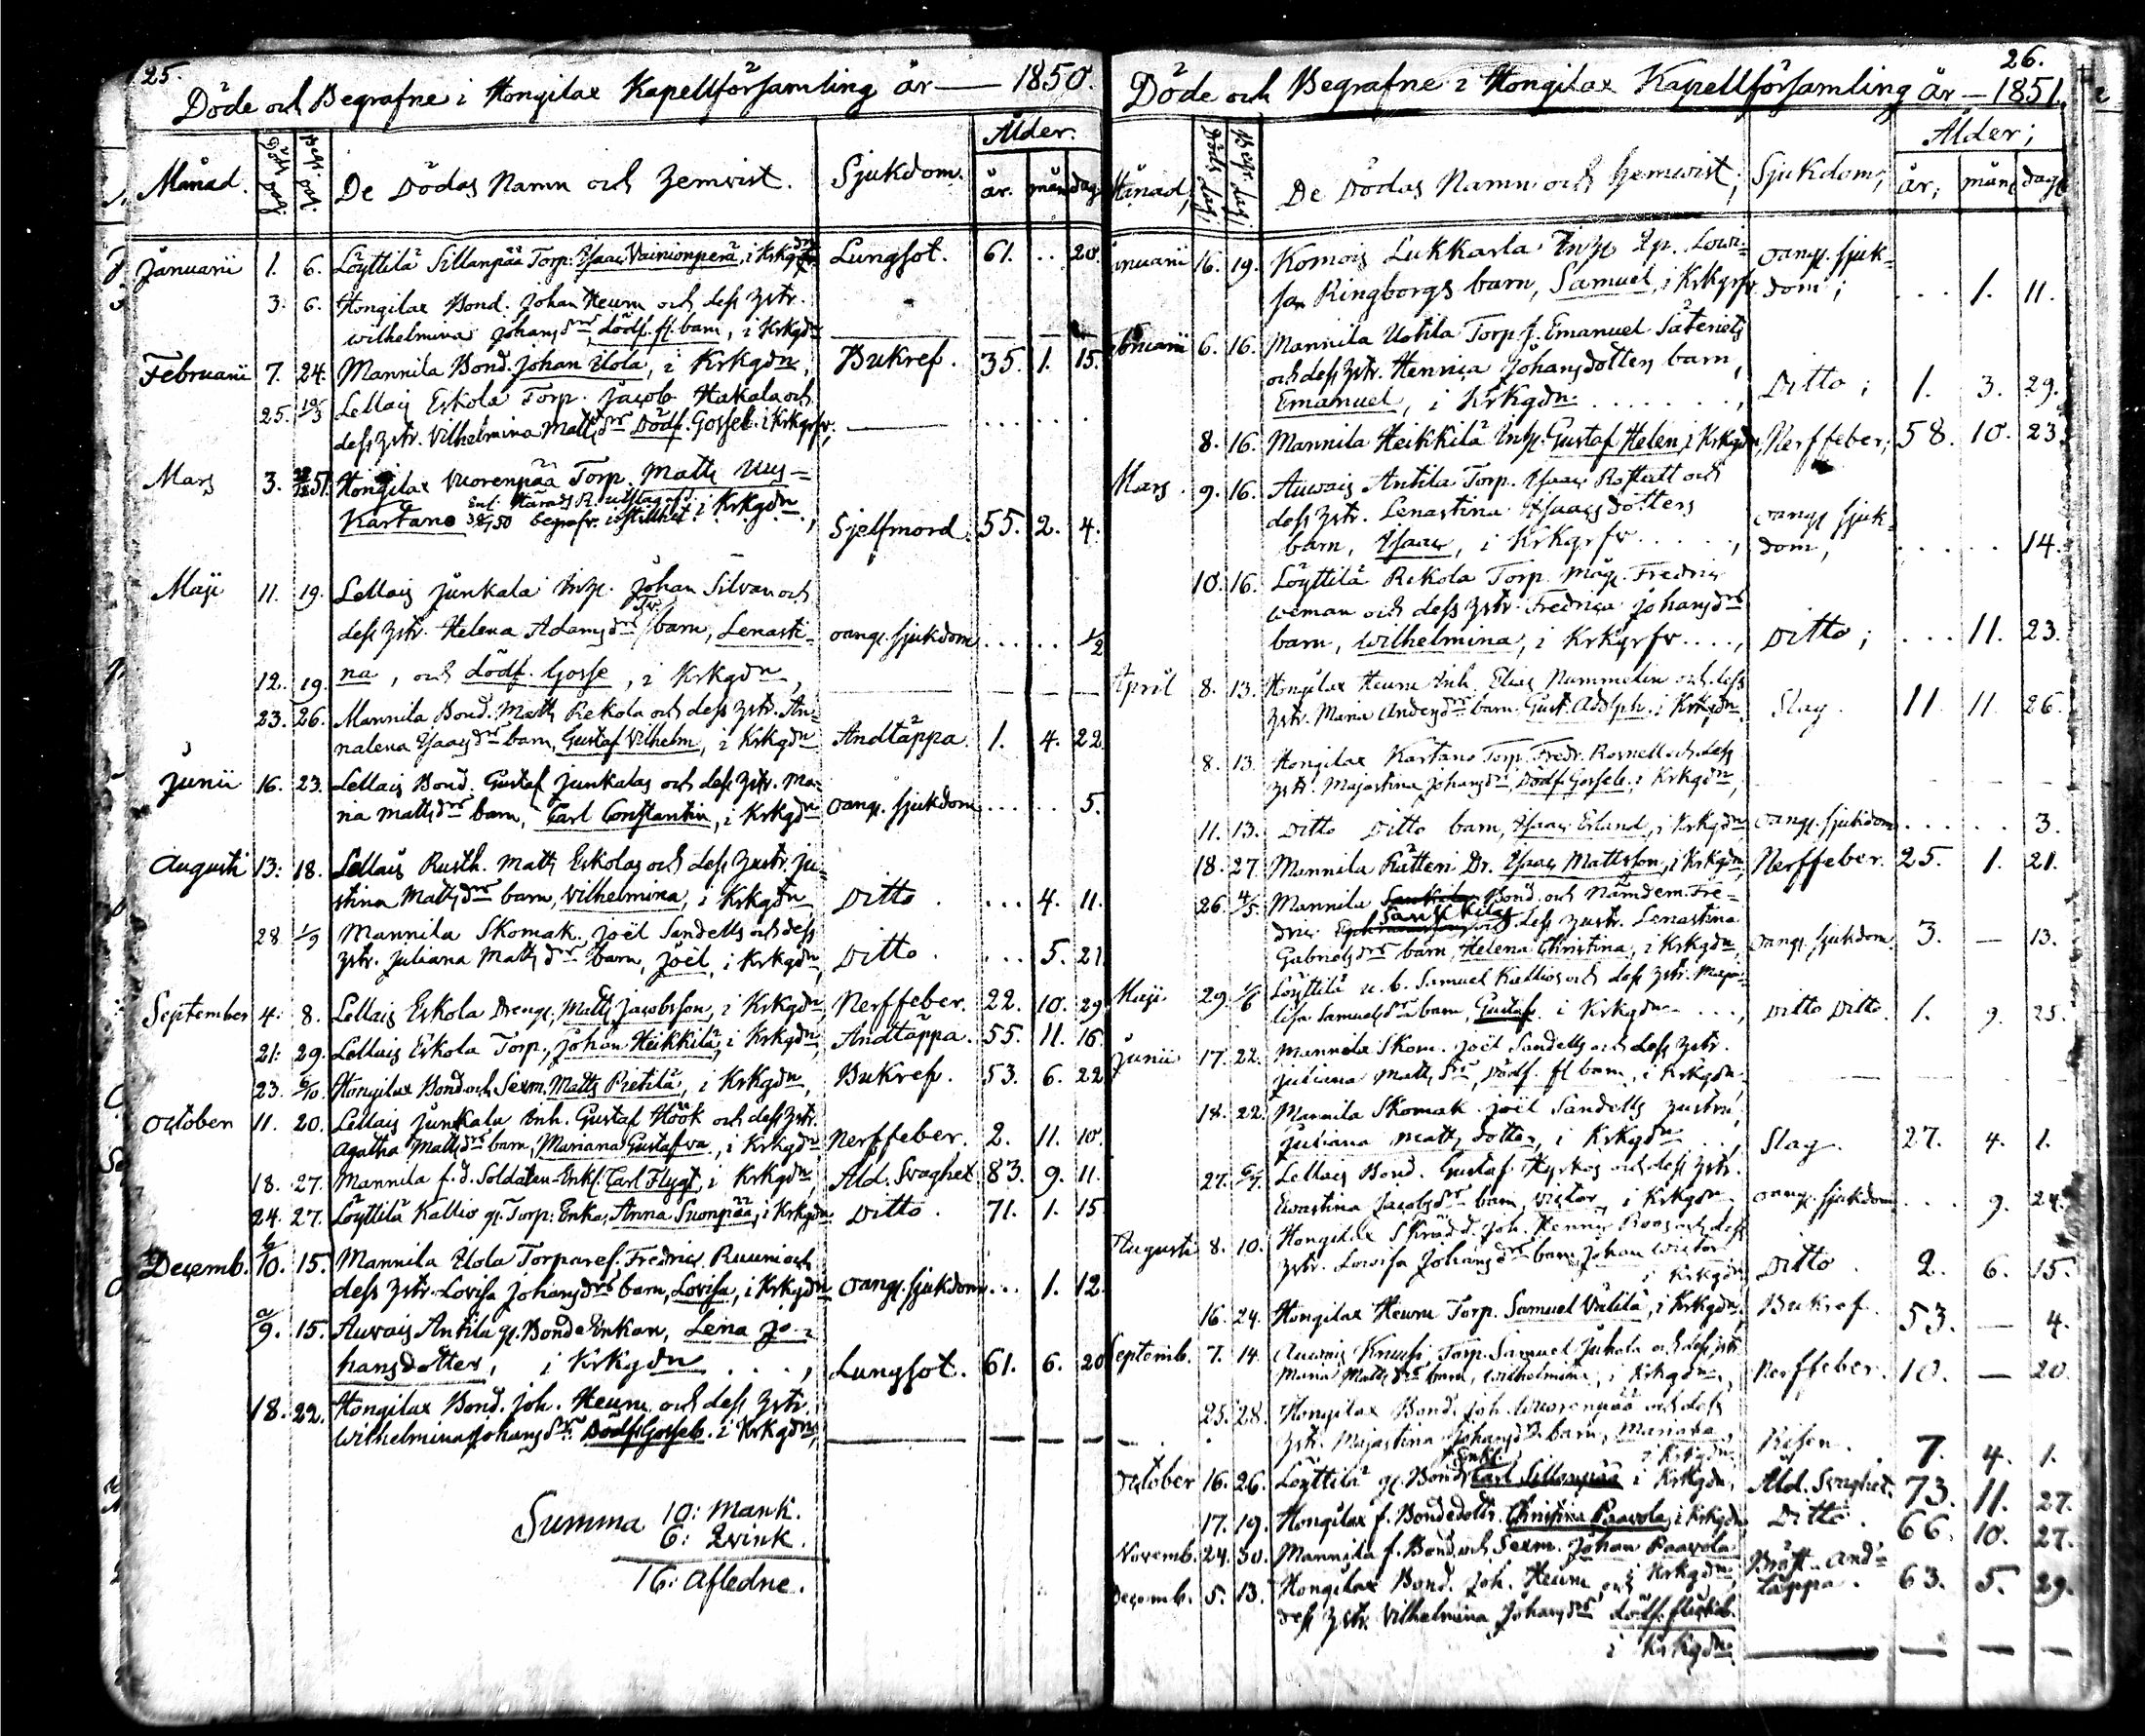 25.
Döde och Begrafne i Hongilax Kapellförsamling år — 1850.
Månad. Döds dag. Begr. dag. De Dödas Namn och hemvist. Sjukdom. Ålder. år. mån. dag.
Januarii 1. 6. Löyttilä Sillanpää Torp. Isaac Vainionperä, i Krkgdn Lungsot. 61. .. 20.
3. 6. Hongilax Bond. Johan Heurn och dess hstr.
Wilhelmina Johansdrs dödf. fl. barn, i Krkgdn — — —
Februarii 7. 24. Mannila Bond. Johan Elola, i Krkgdn, Bukref. 35. 1. 15.
25. 10/3 Lellais Eskola Torp. Jacob Hakala och
dess hstr. Vilhelmina Mattsdrs Dödf. Gosseb. i Krkgrfv; — .....
Mars 3. 51. Hongilax Vuorenpää Torp. Matts Uus=
Kartano Enl. Härads R. utslag af 50 begrafv. i stillhet i Krkgdn, Sjelfmord. 55. 2. 4.
Maji 11. 19. Lellais Junkala Inh. Johan Silvan och
dess hstr. Helena Adamsdrs Tv. barn, Lenasti= oang. sjukdom ... .. 1/2
12. 19. na, och dödf. Gosse, i Krkgdn, — — —
23. 26. Mannila Bond. Matts Rekola och dess hstr. An=
nalena Isaacsdrs barn, Gustaf Vilhelm, i Krkgdn Andtäppa. 1. 4. 22
Junii 16. 23. Lellais Bond. Gustaf Junkalas och dess hstr. Ma=
ria Mattsdrs barn, Carl Constantin, i Krkgdn oang. sjukdom ... .. 5.
Augusti 13: 18. Lellais Rusth. Matts Eskolas och dess hustr. Ju=
stina Mattsdrs barn, Vilhelmina, i Krkgdn Ditto. ... 4. 11.
28. 1/9 Mannila Skomak. Joël Sandells och dess
hstr. Juliana Mattsdrs barn, Joël, i Krkgdn, Ditto. ... 5. 21
September 4. 8. Lellais Eskola Dreng. Matts Jacobsson, i Krkgdn Nerffeber. 22. 10. 29
21: 29. Lellais Eskola Torp. Johan Heikkilä, i Krkgdn, Andtäppa. 55. 11. 16.
23. 6/10 Hongilax Bond och Sexm. Matts Pietilä, i Krkgdn, Bukref. 53. 6. 22
October 11. 20. Lellais Junkala Inh. Gustaf Höök och dess hstr.
Agatha Mattsdrs barn, Mariana Gustafva, i Krkgdn Nerffeber. 2. 11. 10.
18. 27. Mannila f. d. Soldaten Enkl. Carl Flygt, i Krkgdn, Ald. Svaghet 83. 9. 11.
24. 27. Löyttilä Kallio gl. Torp. Enka, Anna Suonpää, i Krkgdn Ditto. 71. 1. 15
Decemb. b/10. 15. Mannila Elola Torparef. Fredric Ruuni och
dess hstr. Lovisa Johansdrs barn, Lovisa, i Krkgdn oang. sjukdom ... 1. 12.
a/9. 15. Auvais Antila gl. Bonde Enkan, Lena Jo=
hansdotter, i Krkgdn ..., Lungsot. 61. 6. 20
18. 22. Hongilax Bond. Joh. Heurn och dess hstr.
Wilhelmina Johansdrs Dödf. Gosseb. i Krkgdn, — — —
Summa 10: Mank.
6: Qvink.
16: Afledne.
26.
Döde och Begrafne i Hongilax Kapellförsamling år — 1851.
Månad, Döds dag; Begr. dag; De Dödas Namn och hemvist; Sjukdom; Ålder; år; mån; dag;
Januarii 16. 19. Komois Lukkarla Inh. Qp. Lovi=
sa Ringborgs barn, Samuel, i Krkgrfv. oang. sjuk=dom; ... 1. 11.
Februarii 6. 16. Mannila Uotila Torp. f. Emanuel Säteriets
och dess hstr. Henrica Johansdotters barn,
Emanuel, i Krkgdn ......, Ditto; 1. 3. 29.
8. 16. Mannila Heikkilä Inh. Gustaf Helen, i Krkgdn, Nerffeber; 58. 10. 23.
Mars. 9. 16. Auvais Antila Torp. Isaac Rostett och
dess hstr. Lenastina Isaacsdotters
barn, Isaac, i Krkgrfv ....., oang. sjuk=dom, ..... 14.
10. 16. Löyttilä Rekola Torp. Måg. Fredric
Weman och dess hstr. Fredrica Johansdrs
barn, Wilhelmina, i Krkgrfv ...., Ditto; ... 11. 23.
April 8. 13. Hongilax Heurn Inh. Elias Nummelin och dess
hstr. Maria Andersdrs barn, Gust. Adolph, i Krkgdn, Slag. 11. 11. 26.
8. 13. Hongilax Kartano Torp. Fredr. Rosnell och dess
hstr. Majastina Johansdrs, Dödf. Gosseb. i Krkgdn, — — —
11. 13. Ditto Ditto barn, Isaac Erland, i Krkgdn oang. sjukdom ..... 3.
18. 27. Mannila Rätteri Dr. Isaac Mattsson, i Krkgdn, Nerffeber. 25. 1. 21.
26. 4/5. Mannila Bond. och Nämdem. Fre=
dric Sankkilas dess hustr. Lenastina
Gabrielsdrs barn, Helena Christina, i Krkgdn, oang. sjukdom. 3. — 13.
Maji 29. 1/6 Löyttilä u. b. Samuel Kallios och dess hstr. Maja=
lisa Samuelsdrs barn, Gustaf, i Krkgdn ..., Ditto Ditto. 1. 9. 25.
Junii 17. 22. Mannila Skom. Joël Sandells och dess hstr.
Juliana Mattsdrs, Dödf. fl barn, i Krkgdn — — —
18. 22. Mannila Skomak. Joël Sandells hustru,
Juliana Matts dotter, i Krkgdn .., Slag. 27. 4. 1.
27. 6/7. Lellais Bond. Gustaf Hyrkos och dess hstr.
Evastina Jacobsdrs barn, Victor, i Krkgdn oang. sjukdom ... 9. 24.
Augusti 8. 10. Hongilax Skrädd. Joh. Henric Roos och dess
hstr. Lovisa Johansdrs barn, Johan Wictor
i Krkgdn Ditto. 2. 6. 15.
16. 24. Hongilax Heurn Torp. Samuel Välilä, i Krkgdn, Bukref. 53. — 4.
Septemb. 7. 14. Auvais Knuuti Torp. Samuel Juhola och dess hstr.
Maria Mattsdrs barn, Wilhelmina, i Krkgdn, Nerffeber. 10. — 20.
25. 28. Hongilax Bond. Joh. Wuorenpää och dess
hstr. Majastina Johansdrs barn, Mariana,
i Krkgdn Risen. 7. 4. 1.
October 16. 26. Löyttilä gl. Bond. Enkl. Carl Sillanpää i Krkgdn, Ald. Svaghet. 73. 11. 27.
17. 19. Hongilax f. Bondedottr. Christina Paavola, i Krkgdn Ditto. 66. 10. 27.
Novemb. 24. 30. Mannila f. Bond. och Sexm. Johan Paavola
i Krkgdn, Bröst-And=täppa. 63. 5. 29.
Decemb. 5. 13. Hongilax Bond. Joh. Heurn och
dess hstr. Vilhelmina Johansdrs dödf. flickeb.
i Krkgdn — — —